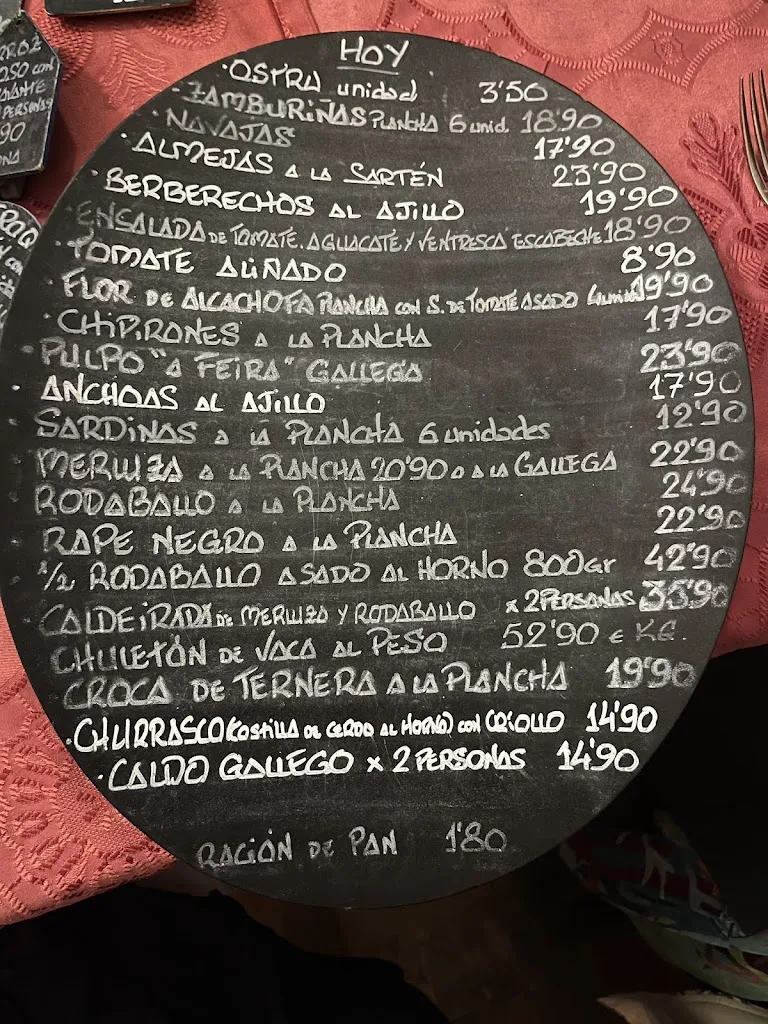 HOY
·OSTRA unidad 3'50
·ZAMBURIÑAS PLANCHA 6 unid. 18'90
·NAVAJAS 17'90
·ALMEJAS A LA SARTÉN 23'90
·BERBERECHOS AL AJILLO 19'90
·ENSALADA DE TOMATE, AGUACATE Y VENTRESCA ESCABECHE 18'90
·TOMATE ALIÑADO 8'90
·FLOR DE ALCACHOFA PLANCHA CON S. DE TOMATE ASADO 19'90
·CHIPIRONES A LA PLANCHA 17'90
·PULPO "A FEIRA" GALLEGA 23'90
·ANCHOAS AL AJILLO 17'90
·SARDINAS A LA PLANCHA 6 unidades 12'90
·MERLUZA A LA PLANCHA 20'90 O A LA GALLEGA 22'90
·RODABALLO A LA PLANCHA 24'90
·RAPE NEGRO A LA PLANCHA 22'90
·1/2 RODABALLO ASADO AL HORNO 800gr 42'90
·CALDEIRADA DE MERLUZA Y RODABALLO x 2 PERSONAS
CHULETÓN DE VACA AL PESO 52'90 € KG.
CROCA DE TERNERA A LA PLANCHA 19'90
·CHURRASCO (COSTILLA DE CERDO AL HORNO) CON CRIOLLO 14'90
·CALDO GALLEGO x 2 PERSONAS 14'90
RACIÓN DE PAN 1'80